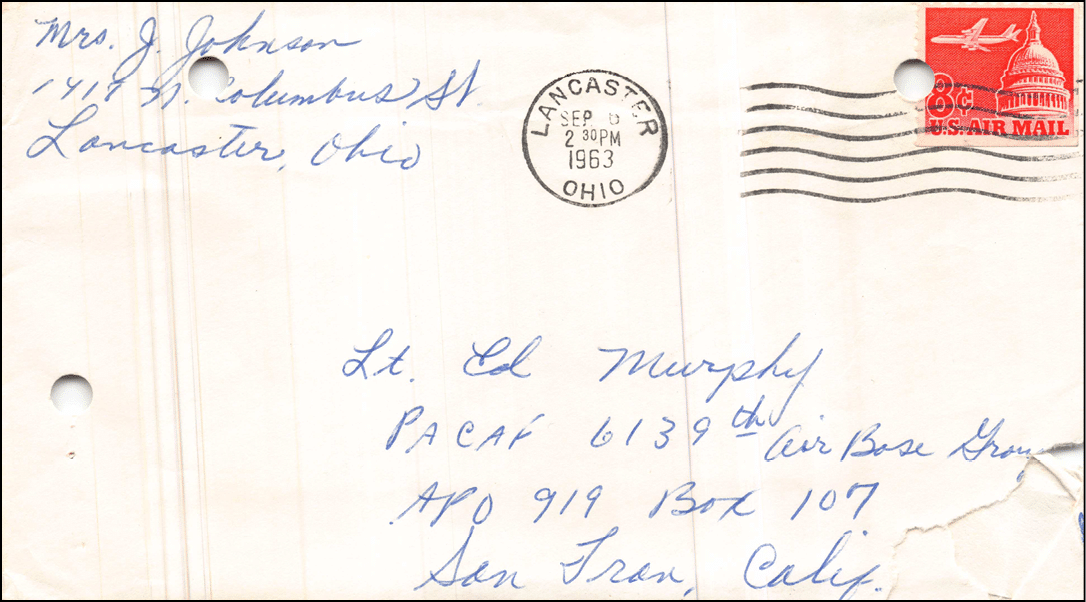 Mrs. J. Johnson
1417 N. Columbus St.
Lancaster, Ohio
LANCASTER
SEP 6
2 30 PM
1963
OHIO
8¢
U.S. AIR MAIL
Lt. Ed Murphy
PACAF 6139th Air Base
APO 919 Box 107
San Fran, Calif.